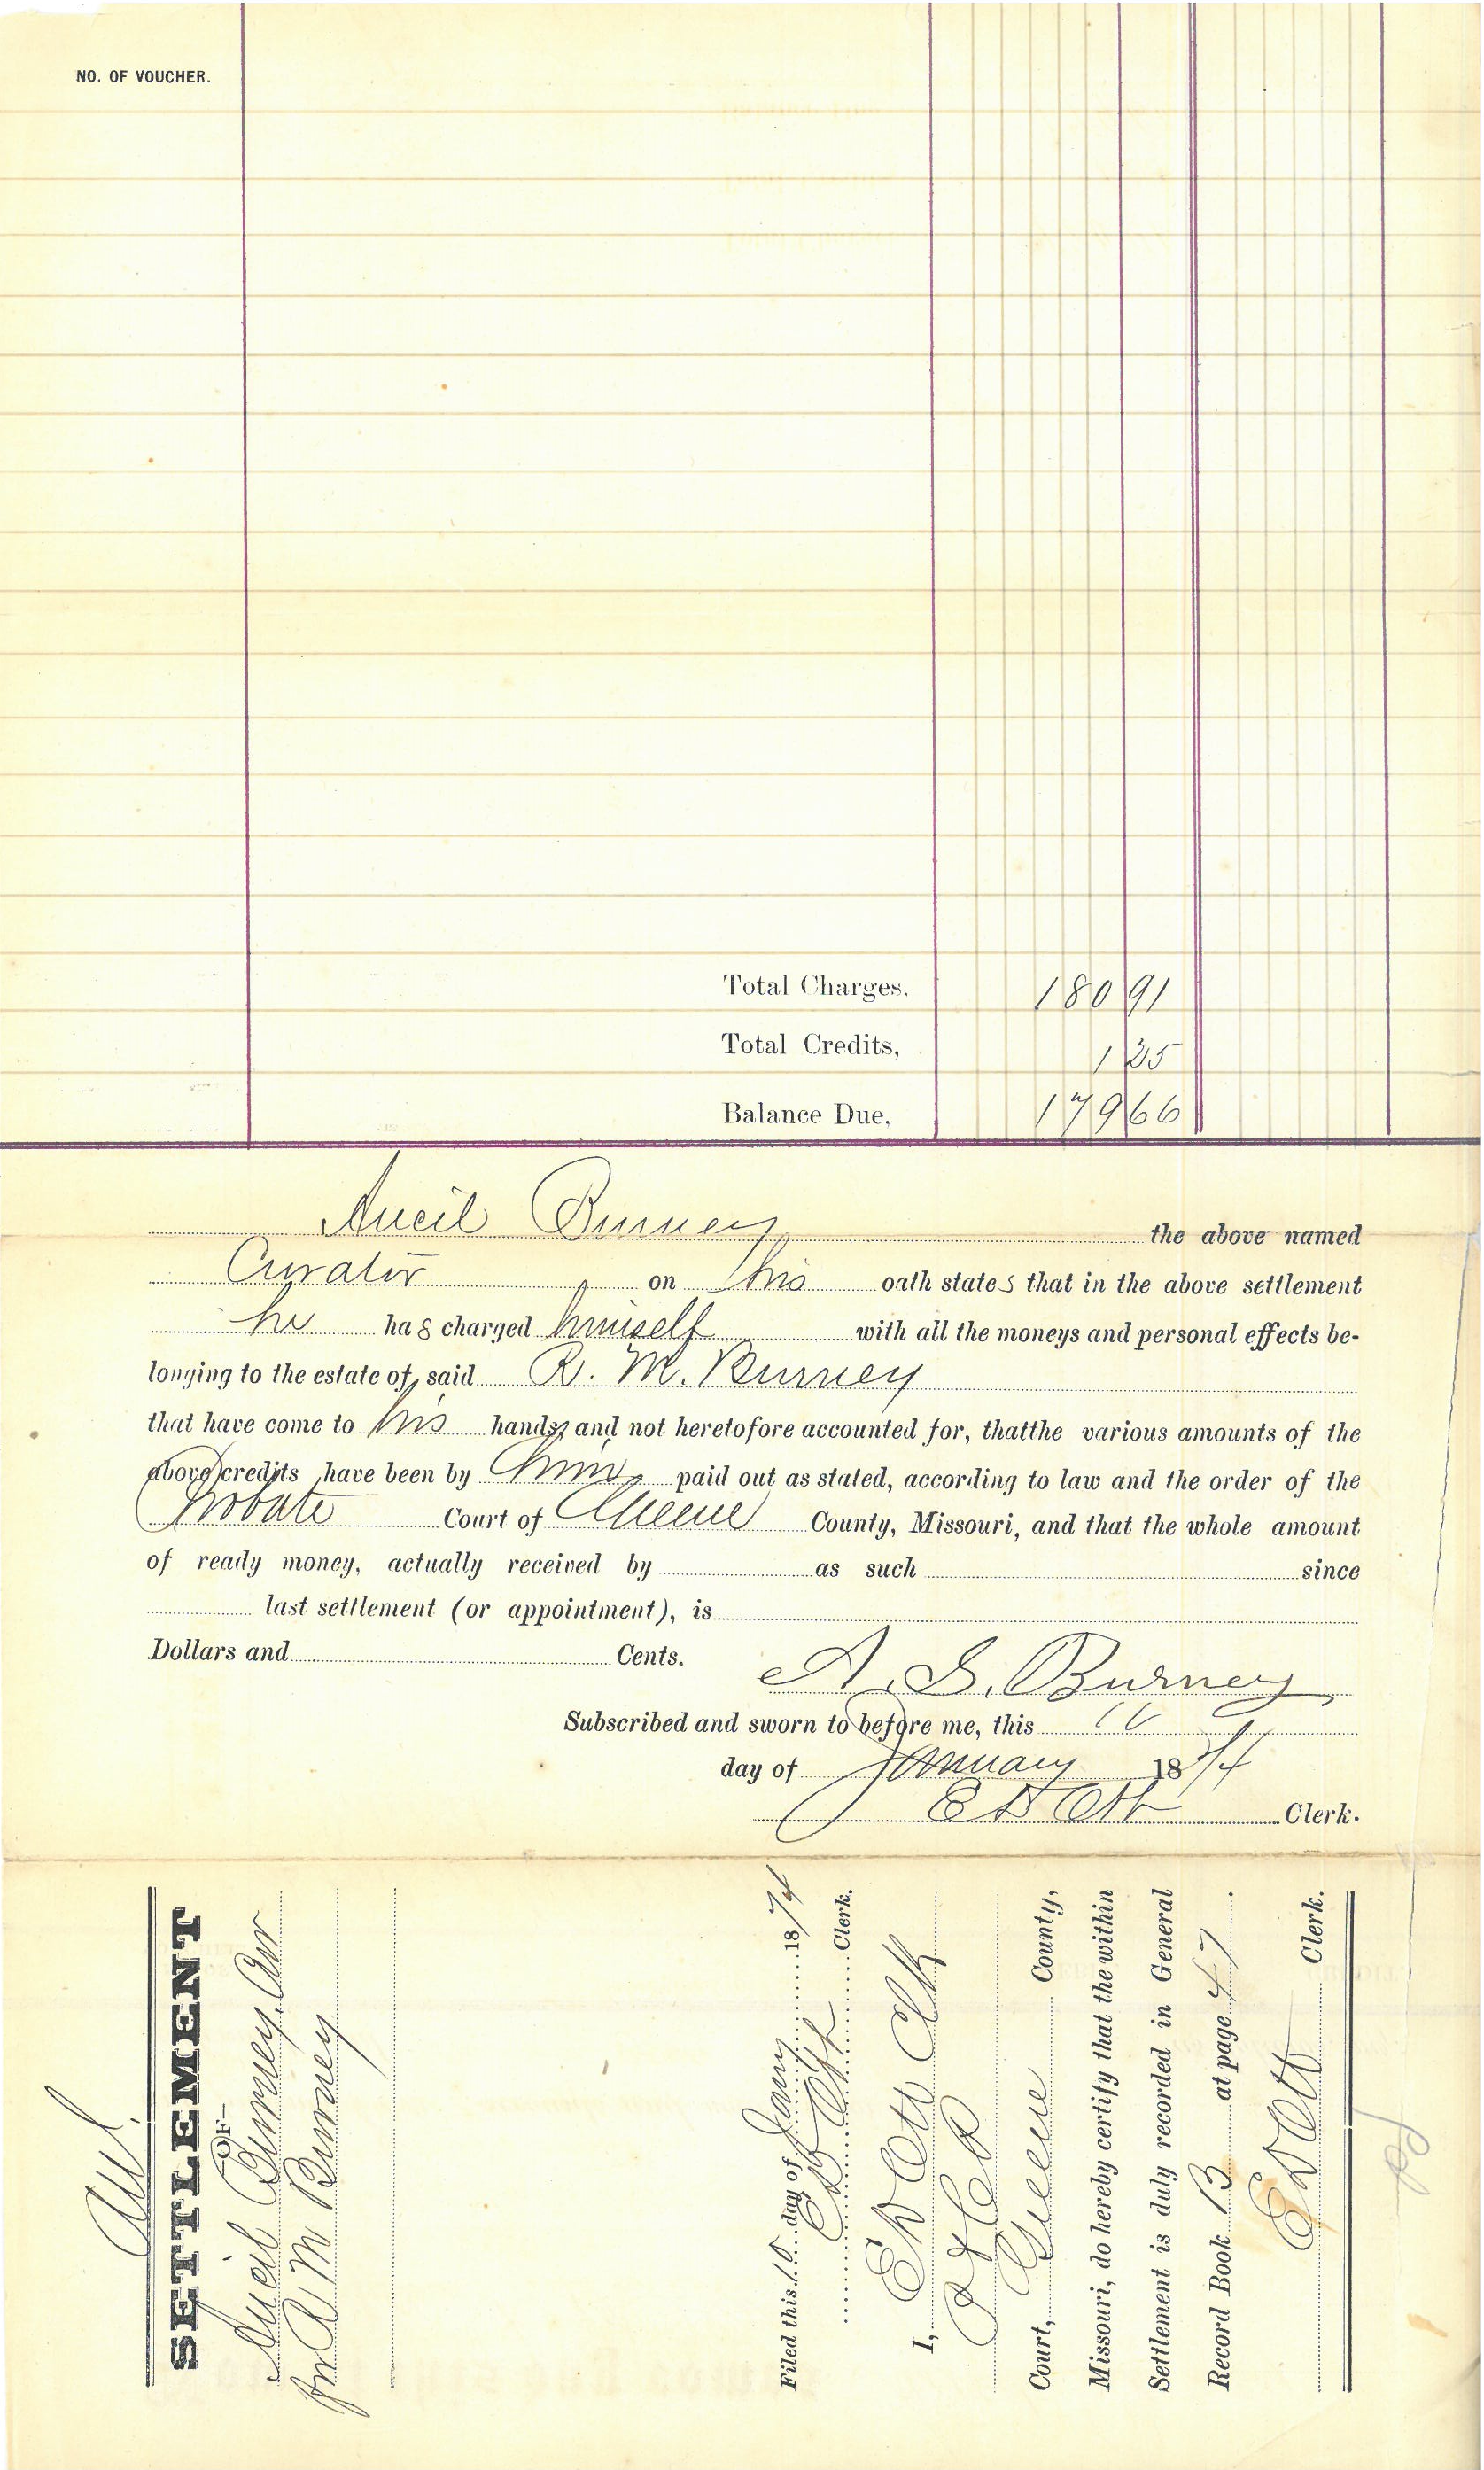 NO. OF VOUCHER.
Total Charges. 180 91
Total Credits, 1 25
Balance Due, 179 66
Aucil Burney the above named
Curator on his oath states that in the above settlement
he has charged himself with all the moneys and personal effects be-
longing to the estate of said R. M. Burney
that have come to his hands and not heretofore accounted for, thatthe various amounts of the
above credits have been by him paid out as stated, according to law and the order of the
Probate Court of Greene County, Missouri, and that the whole amount
of ready money, actually received by as such since
last settlement (or appointment), is
Dollars and Cents.
A. S. Burney
Subscribed and sworn to before me, this
day of January 1874
E D Ott Clerk.
SETTLEMENT
OF
Aucil Burney, Cur
for R M Burney
Filed this 10 day of Jany 1874
E D Ott Clerk.
I, E D Ott Clk
Court, Greene County,
Missouri, do hereby certify that the within
Settlement is duly recorded in General
Record Book B at page 47.
E D Ott Clerk.